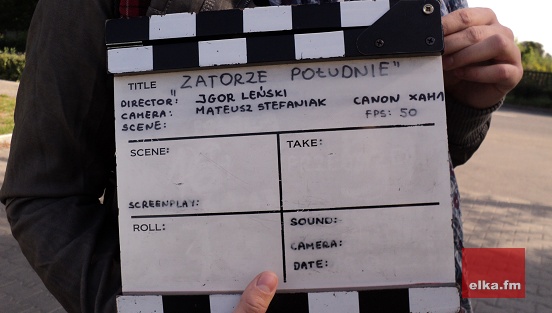 TITLE "ZATORZE POŁUDNIE"
DIRECTOR: IGOR LEŃSKI
CAMERA: MATEUSZ STEFANIAK CANON XAH1
SCENE: FPS: 50
SCENE: TAKE:
SCREENPLAY:
ROLL: SOUND:
CAMERA:
DATE:
elka.fm